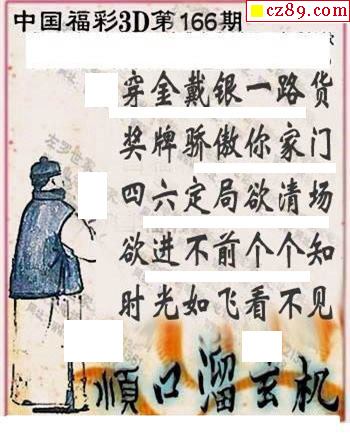 cz89.com
中国福彩3D第166期
穿金戴银一路货
奖牌骄傲你家门
四六定局欲清场
欲进不前个个知
时光如飞看不见
顺口溜玄机